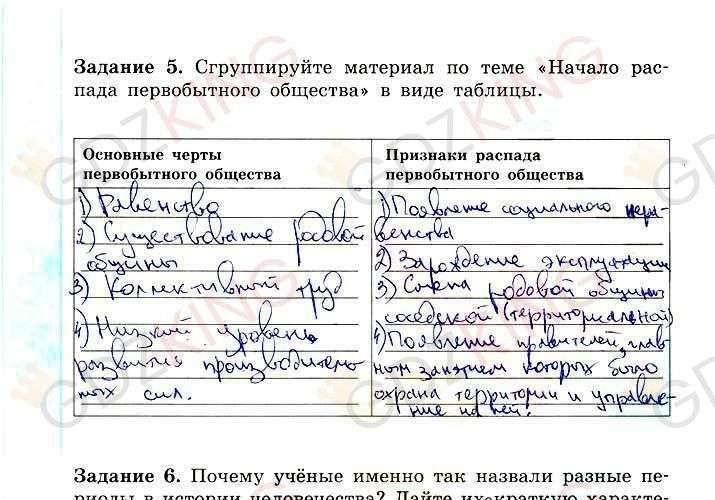 Задание 5. Сгруппируйте материал по теме «Начало рас-
пада первобытного общества» в виде таблицы.
Основные черты
первобытного общества
1) Равенство
2) Существование родовой
общины
3) Коллективный труд
4) Низкий уровень
развития производитель
ных сил.
Признаки распада
первобытного общества
1) Появление социального нера-
венства
2) Зарождение эксплуатации
3) Смена родовой общины
соседской (территориальной)
4) Появление правителей, глав-
ным занятием которых было
охрана территории и управле-
ние на ней.
Задание 6. Почему учёные именно так назвали разные пе-
риоды в истории человечества? Дайте их краткую характе-
GDZKING